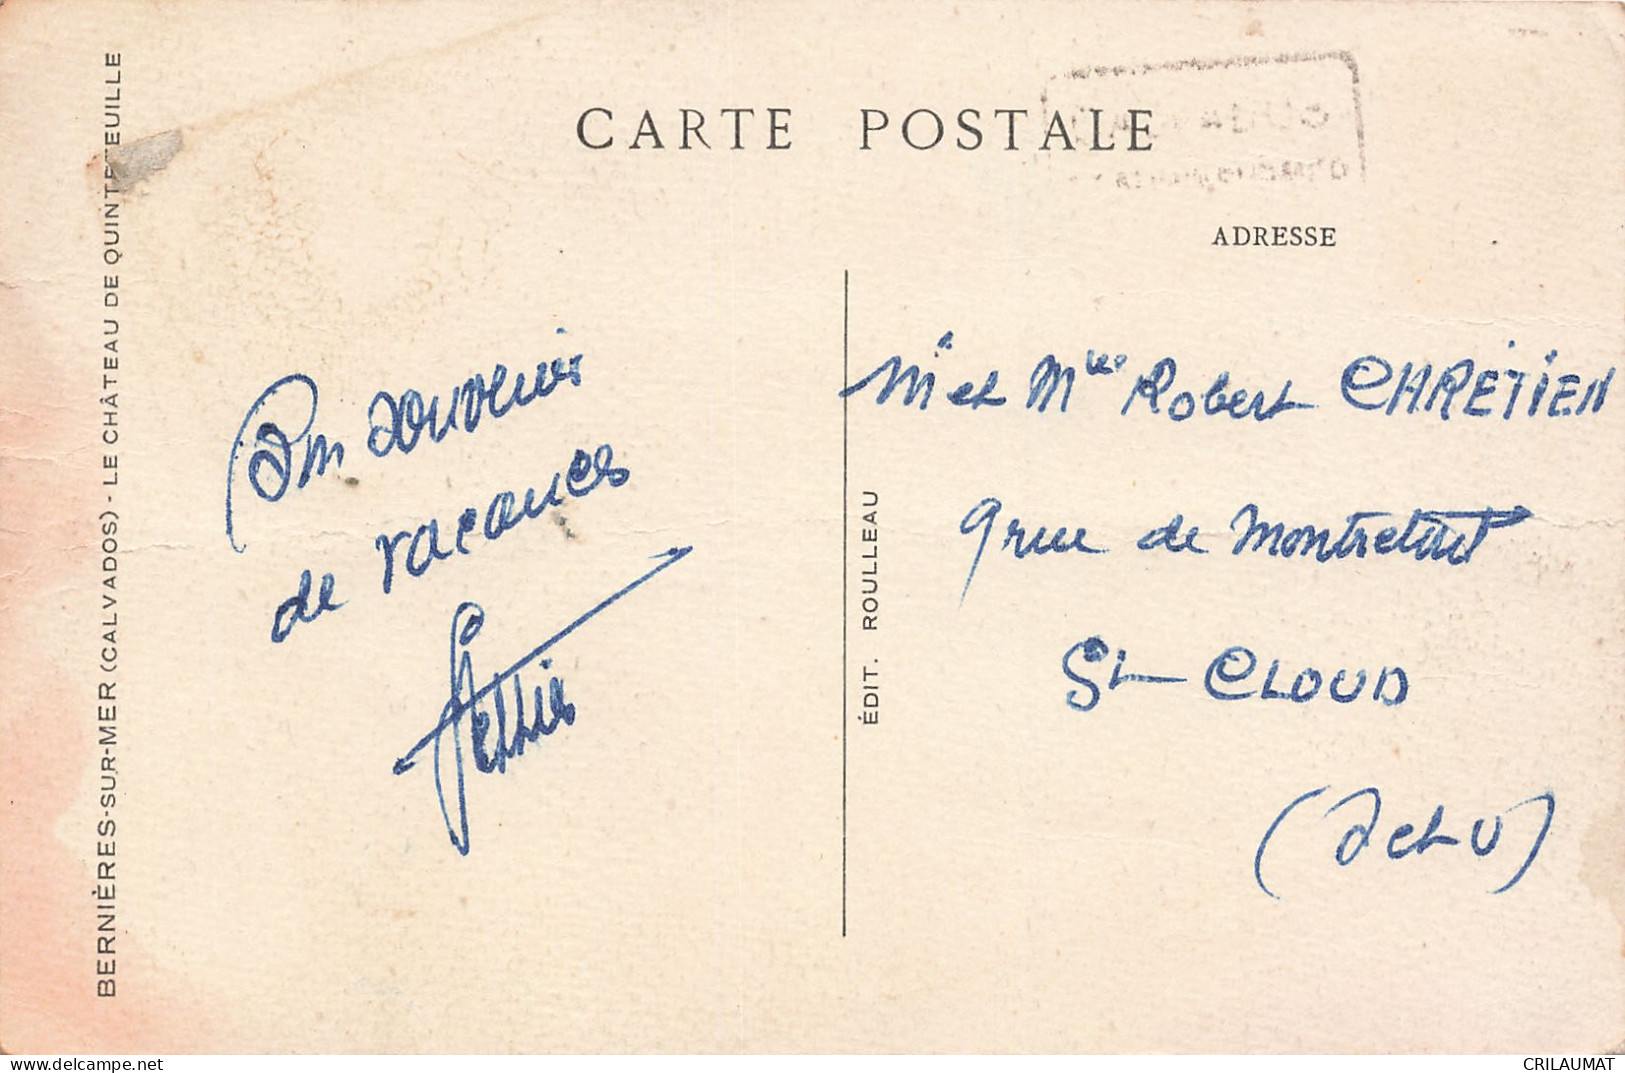 CARTE POSTALE
ADRESSE
BERNIÈRES-SUR-MER (CALVADOS) - LE CHÂTEAU DE QUINTEFEUILLE
Bon souvenir
de vacances
ÉDIT. ROULLEAU
Mr et Mme Robert CHRETIEN
9 rue de Montretout
St CLOUD
(S et O)
www.delcampe.net
CRILAUMAT